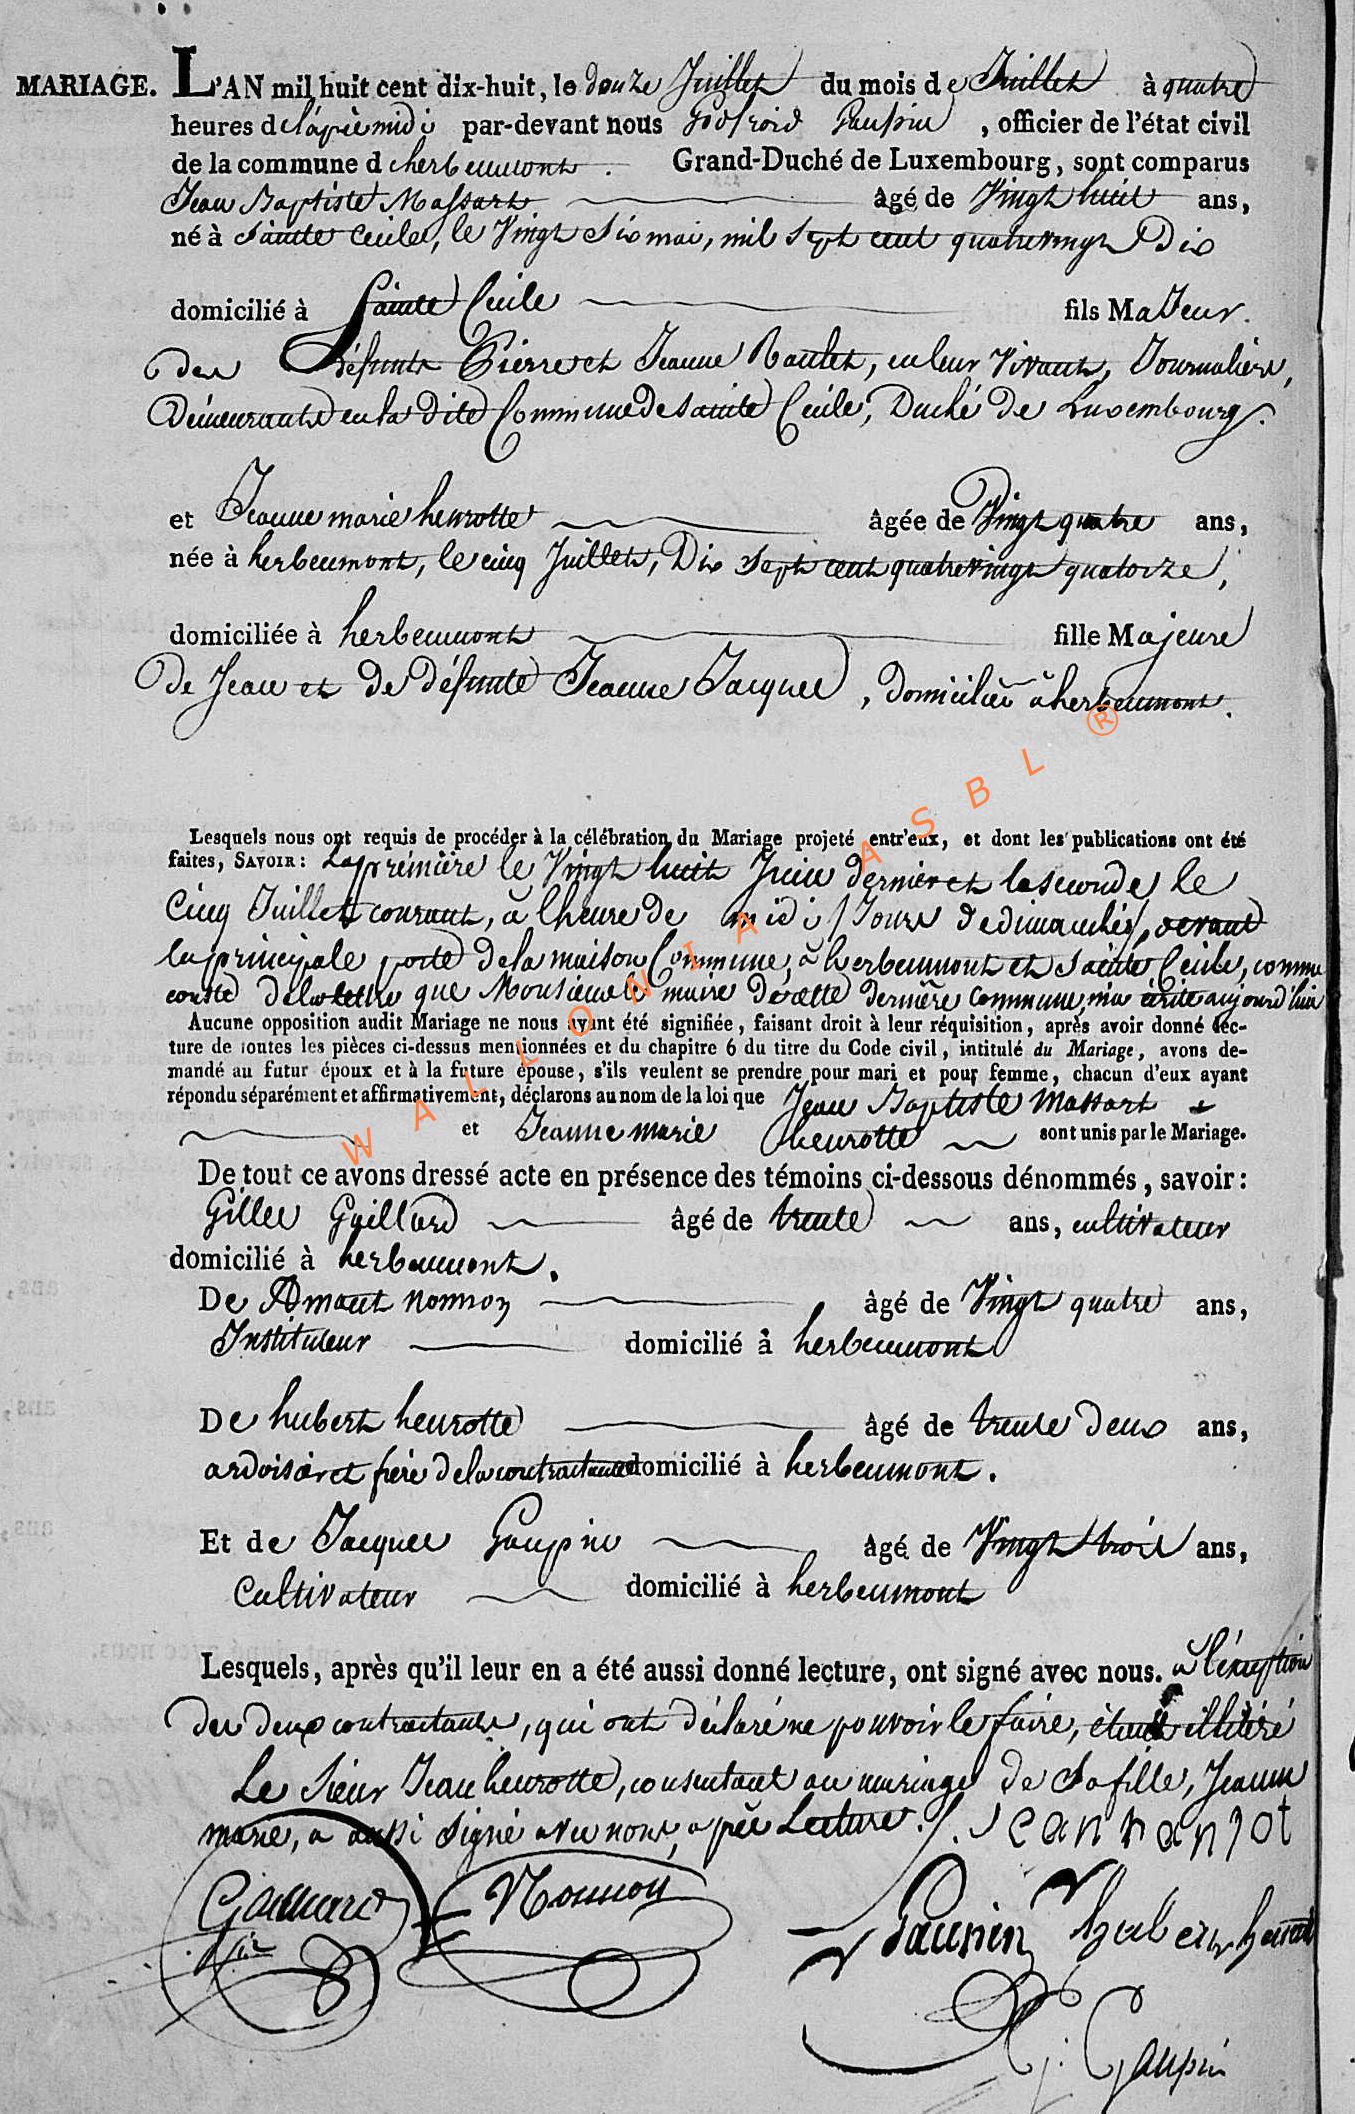 MARIAGE. L'AN mil huit cent dix-huit, le douze Juillet du mois de Juillet à quatre
heures delaprèmidi par-devant nous Godfroid Gaupin, officier de l'état civil
de la commune d herbeumont. Grand-Duché de Luxembourg, sont comparus
Jean Baptiste Massart âgé de Vingt huit ans,
né à Sainte Cecile, le Vingt Six mai, mil Sept cent quatrevingt Dix
domicilié à Sainte Cecile fils MaJeur.
des Défunts Pierre et Jeanne Roulet, en leur Vivant, Journaliers,
Demeurants en la Dite Commune de Sainte Cecile, Duché de Luxembourg.
et Jeanne marie heurotte âgée de Vingt quatre ans,
née à herbeumont, le cinq Juillet, Dix Sept cent quatrevingt quatorze,
domiciliée à herbeumont fille Majeure
De Jean et de Défunte Jeanne Jacques, domiciliés à herbeumont.
Lesquels nous ont requis de procéder à la célébration du Mariage projeté entr'eux, et dont les publications ont été
faites, SAVOIR : La première le Vingt huit Juin dernier et la seconde le
Cinq Juillet courant, à lheure de midi / Jours de dimanches /, devant
la principale porte de la maison Commune, à herbeumont et Sainte Cecile, comme
conste de la lettre que Monsieur le maire de cette dernière Commune, m'a écrite aujourd'hui
Aucune opposition audit Mariage ne nous ayant été signifiée, faisant droit à leur réquisition, après avoir donné lec-
ture de toutes les pièces ci-dessus mentionnées et du chapitre 6 du titre du Code civil, intitulé du Mariage, avons de-
mandé au futur époux et à la future épouse, s'ils veulent se prendre pour mari et pour femme, chacun d'eux ayant
répondu séparément et affirmativement, déclarons au nom de la loi que Jean Baptiste Massart
et Jeanne marie heurotte sont unis par le Mariage.
De tout ce avons dressé acte en présence des témoins ci-dessous dénommés, savoir :
Gilles Gaillard âgé de trente ans, cultivateur
domicilié à herbeumont.
De Amant Nonnon âgé de Vingt quatre ans,
Instituteur domicilié à herbeumont
De hubert heurotte âgé de trente deux ans,
ardoisier et frère de la contractante domicilié à herbeumont.
Et de Jacques Gaupin âgé de Vingt trois ans,
Cultivateur domicilié à herbeumont
Lesquels, après qu'il leur en a été aussi donné lecture, ont signé avec nous. à l'éxception
des deux contractants, qui ont déclaré ne pouvoir le faire, étant illitéré
Le Sieur Jean heurotte, consentant au mariage de Sa fille, Jeanne
marie, a aussi signé avec nous, après Lecture.
Gaillard Nonnon
Gaupin hubert
G: Gaupin
WALLONIA ASBL ®